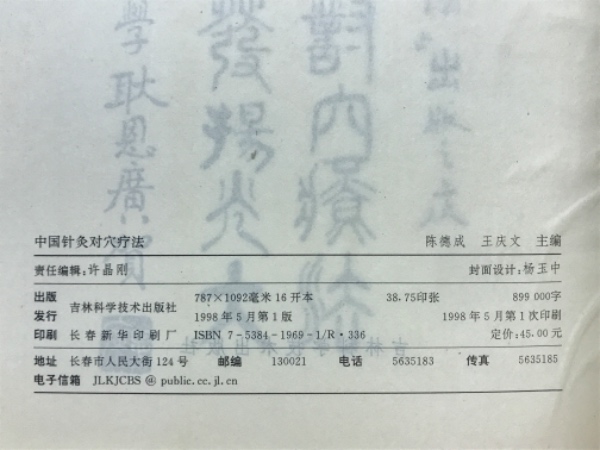 中国针灸对穴疗法 陈德成 王庆文 主编
责任编辑:许晶刚 封面设计:杨玉中
出版 787×1092毫米16开本 38.75印张 899 000字
吉林科学技术出版社
发行 1998年5月第1版 1998年5月第1次印刷
印刷 长春新华印刷厂 ISBN 7-5384-1969-1/R·336 定价:45.00元
地址 长春市人民大街124号 邮编 130021 电话 5635183 传真 5635185
电子信箱 JLKJCBS @ public.cc.jl.cn